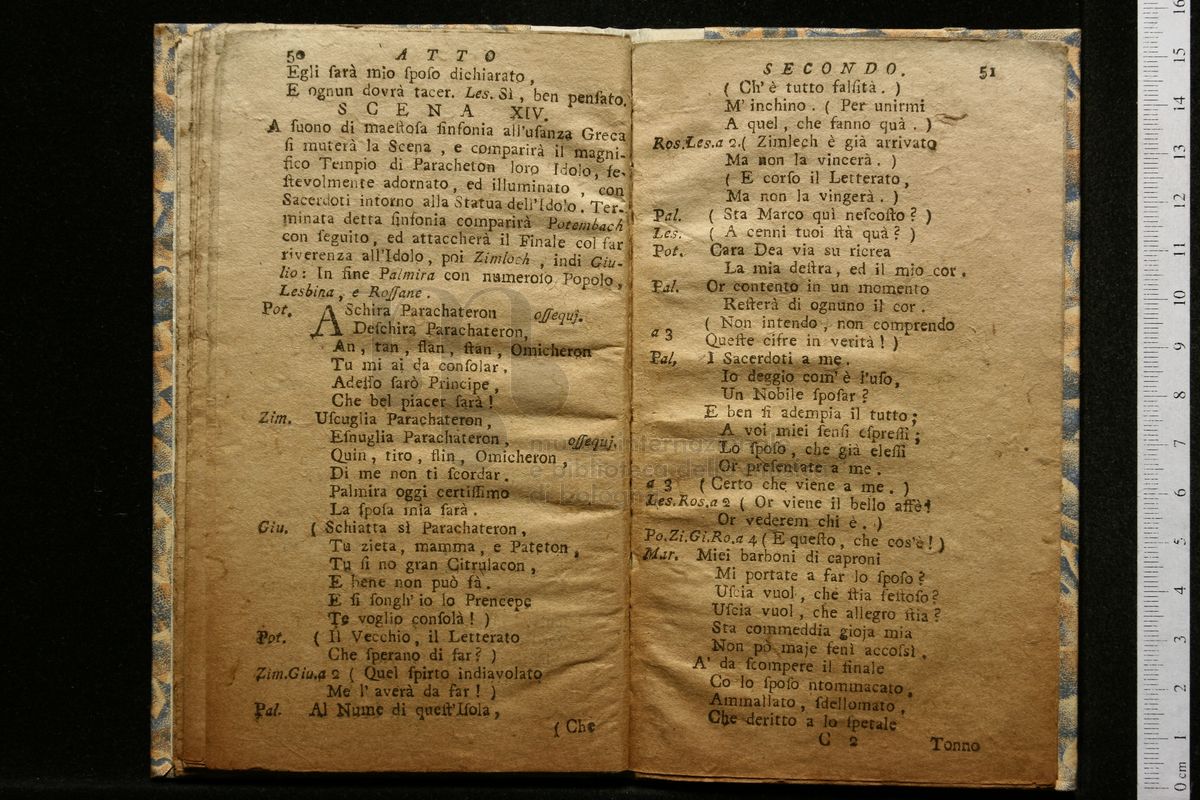 50 ATTO
Egli ſarà mio ſpoſo dichiarato,
E ognun dovrà tacer. Les. Sì, ben penſato.
SCENA XIV.
A ſuono di maeſtoſa ſinfonia all'uſanza Greca
ſi muterà la Scena, e comparirà il magni-
fico Tempio di Paracheton loro Idolo, fe-
ſtevolmente adornato, ed illuminato, con
Sacerdoti intorno alla Statua dell'Idolo. Ter-
minata detta ſinfonia comparirà Potembach
con ſeguito, ed attaccherà il Finale col far
riverenza all'Idolo, poi Zimloch, indi Giu-
lio: In fine Palmira con numeroſo Popolo,
Lesbina, e Roſſane.
Pot. ASchira Parachateron oſſequj.
Deſchira Parachateron,
An, tan, ſlan, ſtan, Omicheron
Tu mi ai da conſolar,
Adeſſo ſarò Principe,
Che bel piacer ſarà!
Zim. Uſcuglia Parachateron,
Eſnuglia Parachateron, oſſequj.
Quin, tiro, ſlin, Omicheron,
Di me non ti ſcordar.
Palmira oggi certiſſimo
La ſpoſa mia ſarà.
Giu. ( Schiatta sì Parachateron,
Tu zieta, mamma, e Pateton,
Tu ſi no gran Citrulacon,
E bene non può fà.
E ſi ſongh' io lo Prencepe
Te voglio conſolà! )
Pot. ( Il Vecchio, il Letterato
Che ſperano di far? )
Zim.Giu.a 2 ( Quel ſpirto indiavolato
Me l' averà da far! )
Pal. Al Nume di queſt'Iſola,
( Che
SECONDO. 51
( Ch' è tutto falſità. )
M' inchino. ( Per unirmi
A quel, che fanno quà. )
Roſ.Leſ.a 2.( Zimlech è già arrivato
Ma non la vincerà. )
( E corſo il Letterato,
Ma non la vingerà. )
Pal. ( Sta Marco quì neſcoſto? )
Les. ( A cenni tuoi ſtà quà? )
Pot. Cara Dea via su ricrea
La mia deſtra, ed il mio cor.
Pal. Or contento in un momento
Reſterà di ognuno il cor.
a 3 ( Non intendo, non comprendo
Queſte cifre in verità! )
Pal, I Sacerdoti a me.
Io deggio com' è l'uſo,
Un Nobile ſpoſar?
E ben ſi adempia il tutto;
A voi miei ſenſi eſpreſſi;
Lo ſpoſo, che già eleſſi
Or preſentate a me.
a 3 ( Certo che viene a me. )
Les.Ros.a 2 ( Or viene il bello affè!
Or vederem chi è. )
Po.Zi.Gi.Ro.a 4 ( E queſto, che cos'è! )
Mar. Miei barboni di caproni
Mi portate a far lo ſpoſo?
Uſcia vuol, che ſtia feſtoſo?
Uſcia vuol, che allegro ſtia?
Sta commeddia gioja mia
Non pò maje fenì accoſsì.
A' da ſcompere il finale
Co lo ſpoſo ntommacato,
Ammallato, ſdellomato,
Che deritto a lo ſpetale
C 2 Tonno